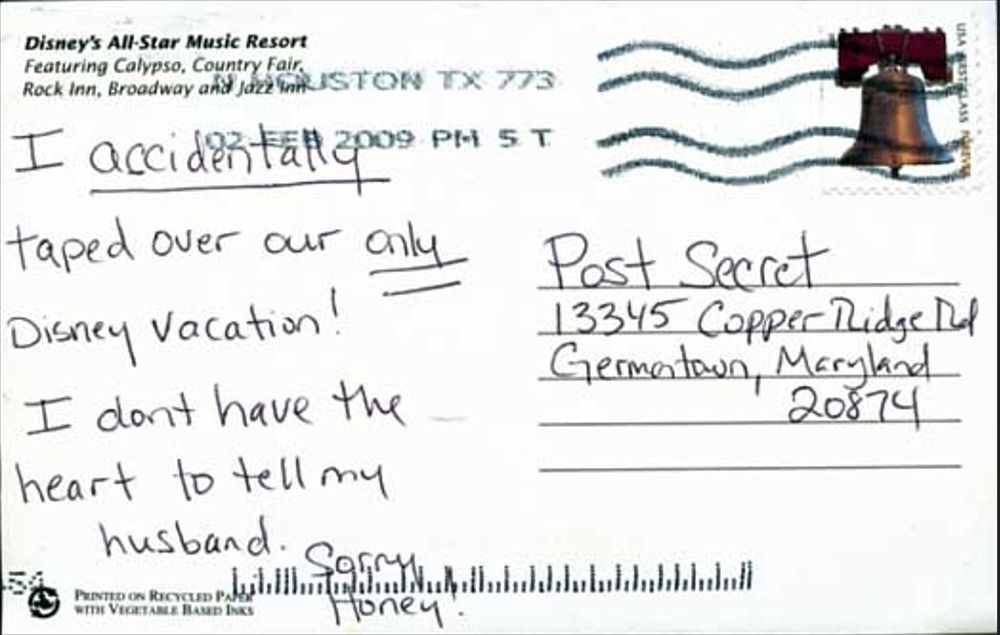 Disney's All-Star Music Resort
Featuring Calypso, Country Fair,
Rock Inn, Broadway and Jazz Inn
N HOUSTON TX 773
02 FEB 2009 PM 5 T
USA FIRST-CLASS FOREVER
I accidentally
taped over our only
Disney vacation!
I dont have the
heart to tell my
husband.
Sorry
Honey.
Post Secret
13345 Copper Ridge Rd
Germantown, Maryland
20874
PRINTED ON RECYCLED PAPER
WITH VEGETABLE BASED INKS